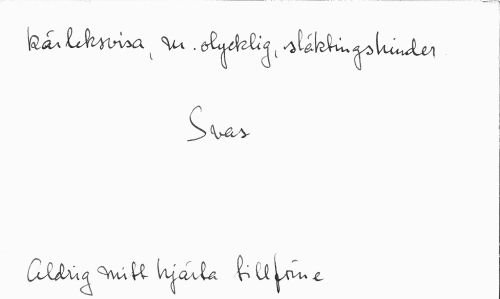 kärleksvisa, m. olycklig, släktingshinder
Svas
Aldrig mitt hjärta tillförne